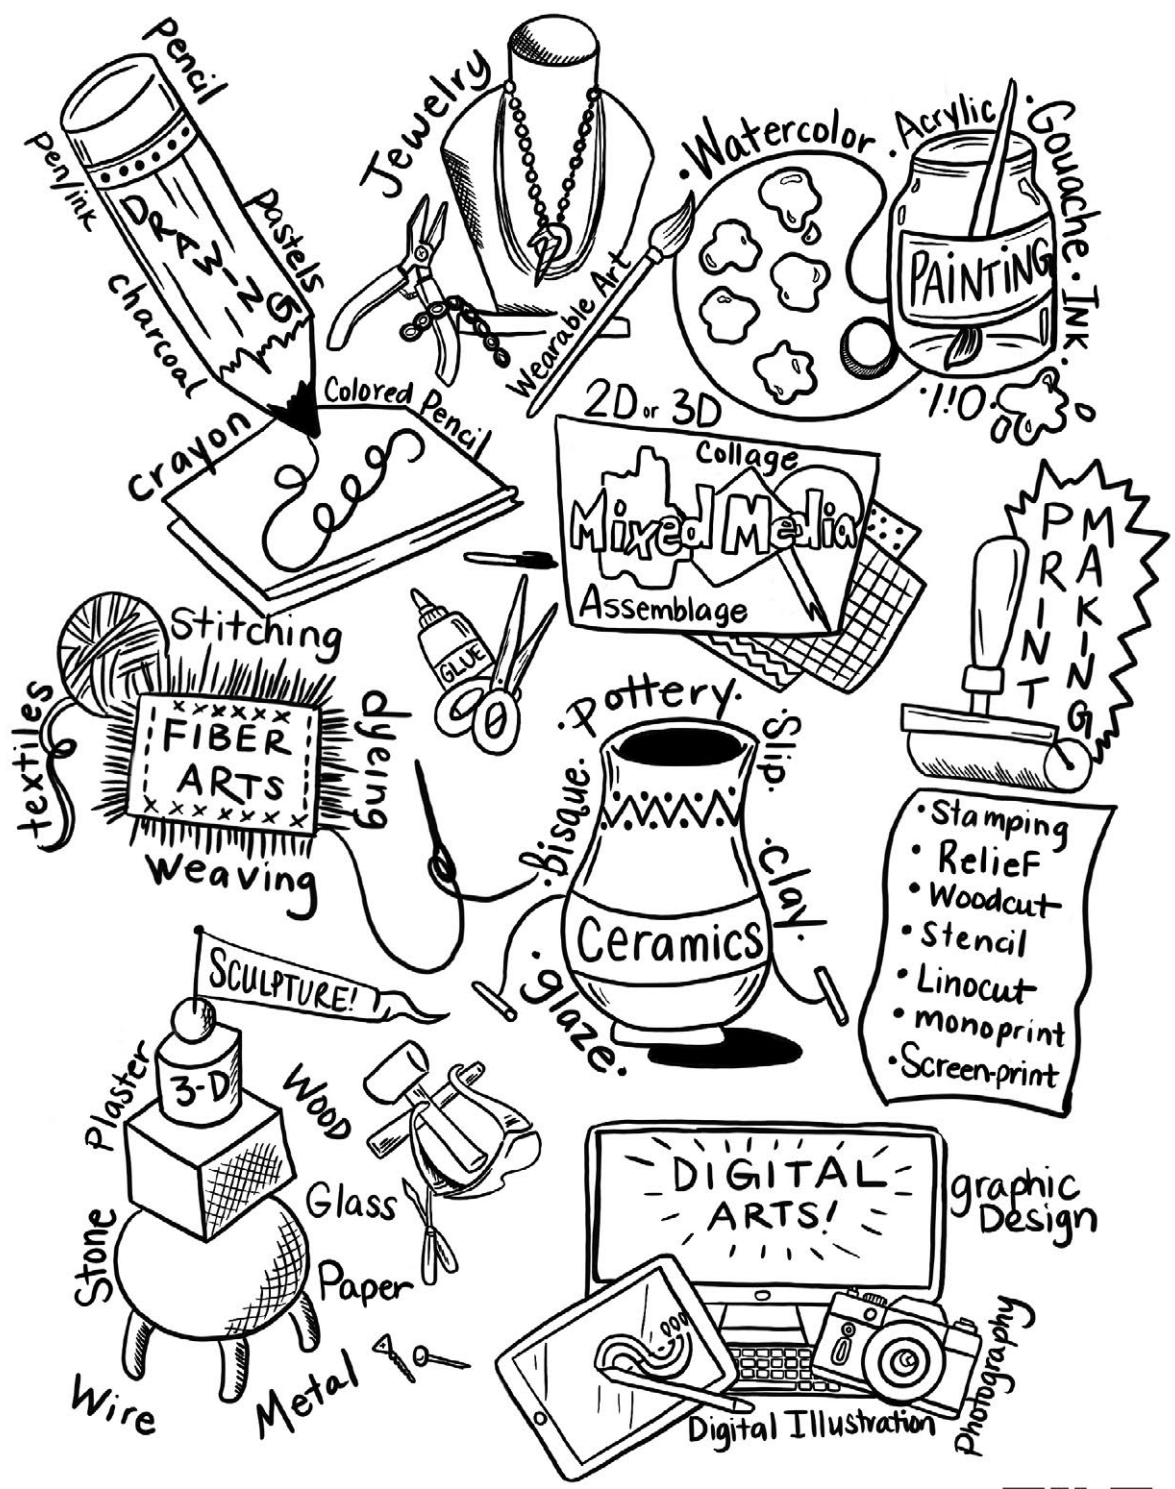 Pencil
pen/ink
DRAWING
pastels
charcoal
Colored Pencil
crayon
Jewelry
Wearable Art
• Watercolor • Acrylic • Gouache • INK •
PAINTING
• Oil •
2D or 3D
Collage
Mixed Media
Assemblage
PRINT
MAKING
• Stamping
• Relief
• Woodcut
• Stencil
• Linocut
• monoprint
• Screen-print
Stitching
textiles
FIBER
ARTS
dyeing
Weaving
GLUE
• Pottery •
• Slip •
• Bisque •
• Clay •
Ceramics
• glaze •
SCULPTURE!
3-D
Plaster
Wood
Glass
Stone
Paper
Wire
Metal
DIGITAL
ARTS!
graphic
Design
Photography
Digital Illustration